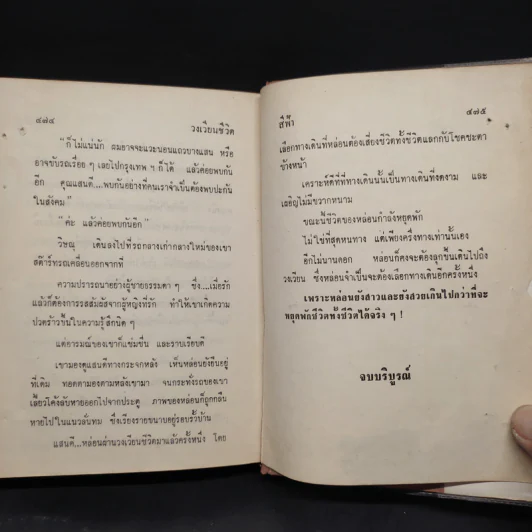 ๔๗๔
วงเวียนชีวิต
"ก็ไม่แน่นัก ผมอาจจะแวะนอนแถวบางแสน หรือ
อาจขับรถเรื่อย ๆ เลยไปกรุงเทพ ฯ ก็ได้ แล้วค่อยพบกัน
อีก คุณแสนดี....พบกันอย่างที่คนเราจำเป็นต้องพบปะกัน
ในสังคม"
"ค่ะ แล้วค่อยพบกันอีก"
วิษณุ เดินลงไปที่รถกลางเก่ากลางใหม่ของเขา
สต๊าร์ทรถเคลื่อนออกจากที่
ความปรารถนาอย่างผู้ชายธรรมดา ๆ ซึ่ง....เมื่อรัก
แล้วก็ต้องการรสสัมผัสจากผู้หญิงที่รัก ทำให้เขาเกิดความ
ปวดร้าวขึ้นในความรู้สึกนิด ๆ
แต่อารมณ์ของเขาก็แช่มชื่น และราบเรียบดี
เขามองดูแสนดีทางกระจกหลัง เห็นหล่อนยังยืนอยู่
ที่เดิม ทอดตามองตามหลังเขามา จนกระทั่งรถของเขา
เลี้ยวโค้งลับหายออกไปจากประตู ภาพของหล่อนก็ถูกกลืน
หายไปในแนวลั่นทม ซึ่งเรียงรายขนานอยู่รอบรั้วบ้าน
แสนดี...หล่อนผ่านวงเวียนชีวิตมาแล้วครั้งหนึ่ง โดย
สีฟ้า
๔๗๕
เลือกทางเดินที่หล่อนต้องเสี่ยงชีวิตทั้งชีวิตแลกกับโชคชะตา
ข้างหน้า
เคราะห์ดีที่ที่ทางเดินนั้นเป็นทางเดินที่งดงาม และ
เผอิญไม่มีขวากหนาม
ขณะนี้ชีวิตของหล่อนกำลังหยุดพัก
ไม่ใช่ที่สุดหนทาง แต่เพียงครึ่งทางเท่านั้นเอง
อีกไม่นานดอก หล่อนก็คงจะต้องลุกขึ้นเดินไปถึง
วงเวียน ซึ่งหล่อนจำเป็นจะต้องเลือกทางเดินอีกครั้งหนึ่ง
เพราะหล่อนยังสาวและยังสวยเกินไปกว่าที่จะ
หยุดพักชีวิตทั้งชีวิตได้จริง ๆ !
จบบริบูรณ์